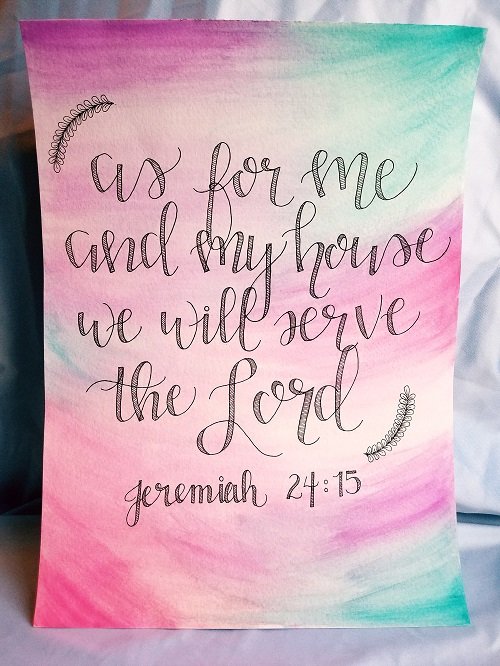 as for me
and my house
we will serve
the Lord
Jeremiah 24:15